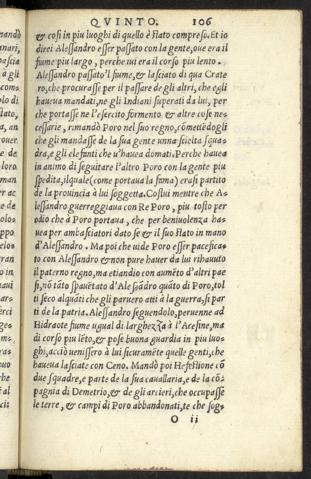 QVINTO. 106
& cosi in piu luoghi di quello è stato compreso. Et io
direi Alessandro esser passato con la gente, oue era il
fiume piu largo, perche iui era il corso piu lento.
Alessandro passato'l fiume, & lasciato di qua Crate
ro, che procurasse per il passare de gli altri, che egli
haueua mandati, ne gli Indiani superati da lui, per
che portasse ne l'esercito formento & altre cose ne-
cessarie, rimandò Poro nel suo regno, cõmettẽdogli
che gli mandasse de la sua gente unna scielta squa-
dra, e gli elefanti che u'hauea domati. Perche hauea
in animo di seguitare l'altro Poro con la gente piu
spedita, ilquale (come portaua la fama) erasi partito
de la prouincia à lui soggetta. Costui mentre che A-
lessandro guerreggiaua con Re Poro, piu tosto per
odio che à Poro portaua, che per beniuolenza ha-
uea per ambasciatori dato se & il suo stato in mano
d'Alessandro. Ma poi che uide Poro esser pacefica-
to con Alessandro & non pure hauer da lui rihauuto
il paterno regno, ma etiandio con aumẽto d'altri pae
si, nõ tãto spauẽtato d'Alesãdro quãto di Poro, tol
ti seco alquãti che gli paruero atti à la guerra, si par
ti de la patria. Alessandro seguendolo, peruenne ad
Hidraote fiume ugual di larghezza à l'Acesine, ma
di corso piu lẽto, & pose buona guardia in piu luo-
ghi, acciò uenissero à lui sicuramẽte quelle genti, che
haueua lasciate con Ceno. Mandò poi Hefestione cõ
due squadre, e parte de la sua cauallaria, e de la cõ-
pagnia di Demetrio, & de gli arcieri, che occupasse
le terre, & campi di Poro abbandonati, te che sog-
O ii